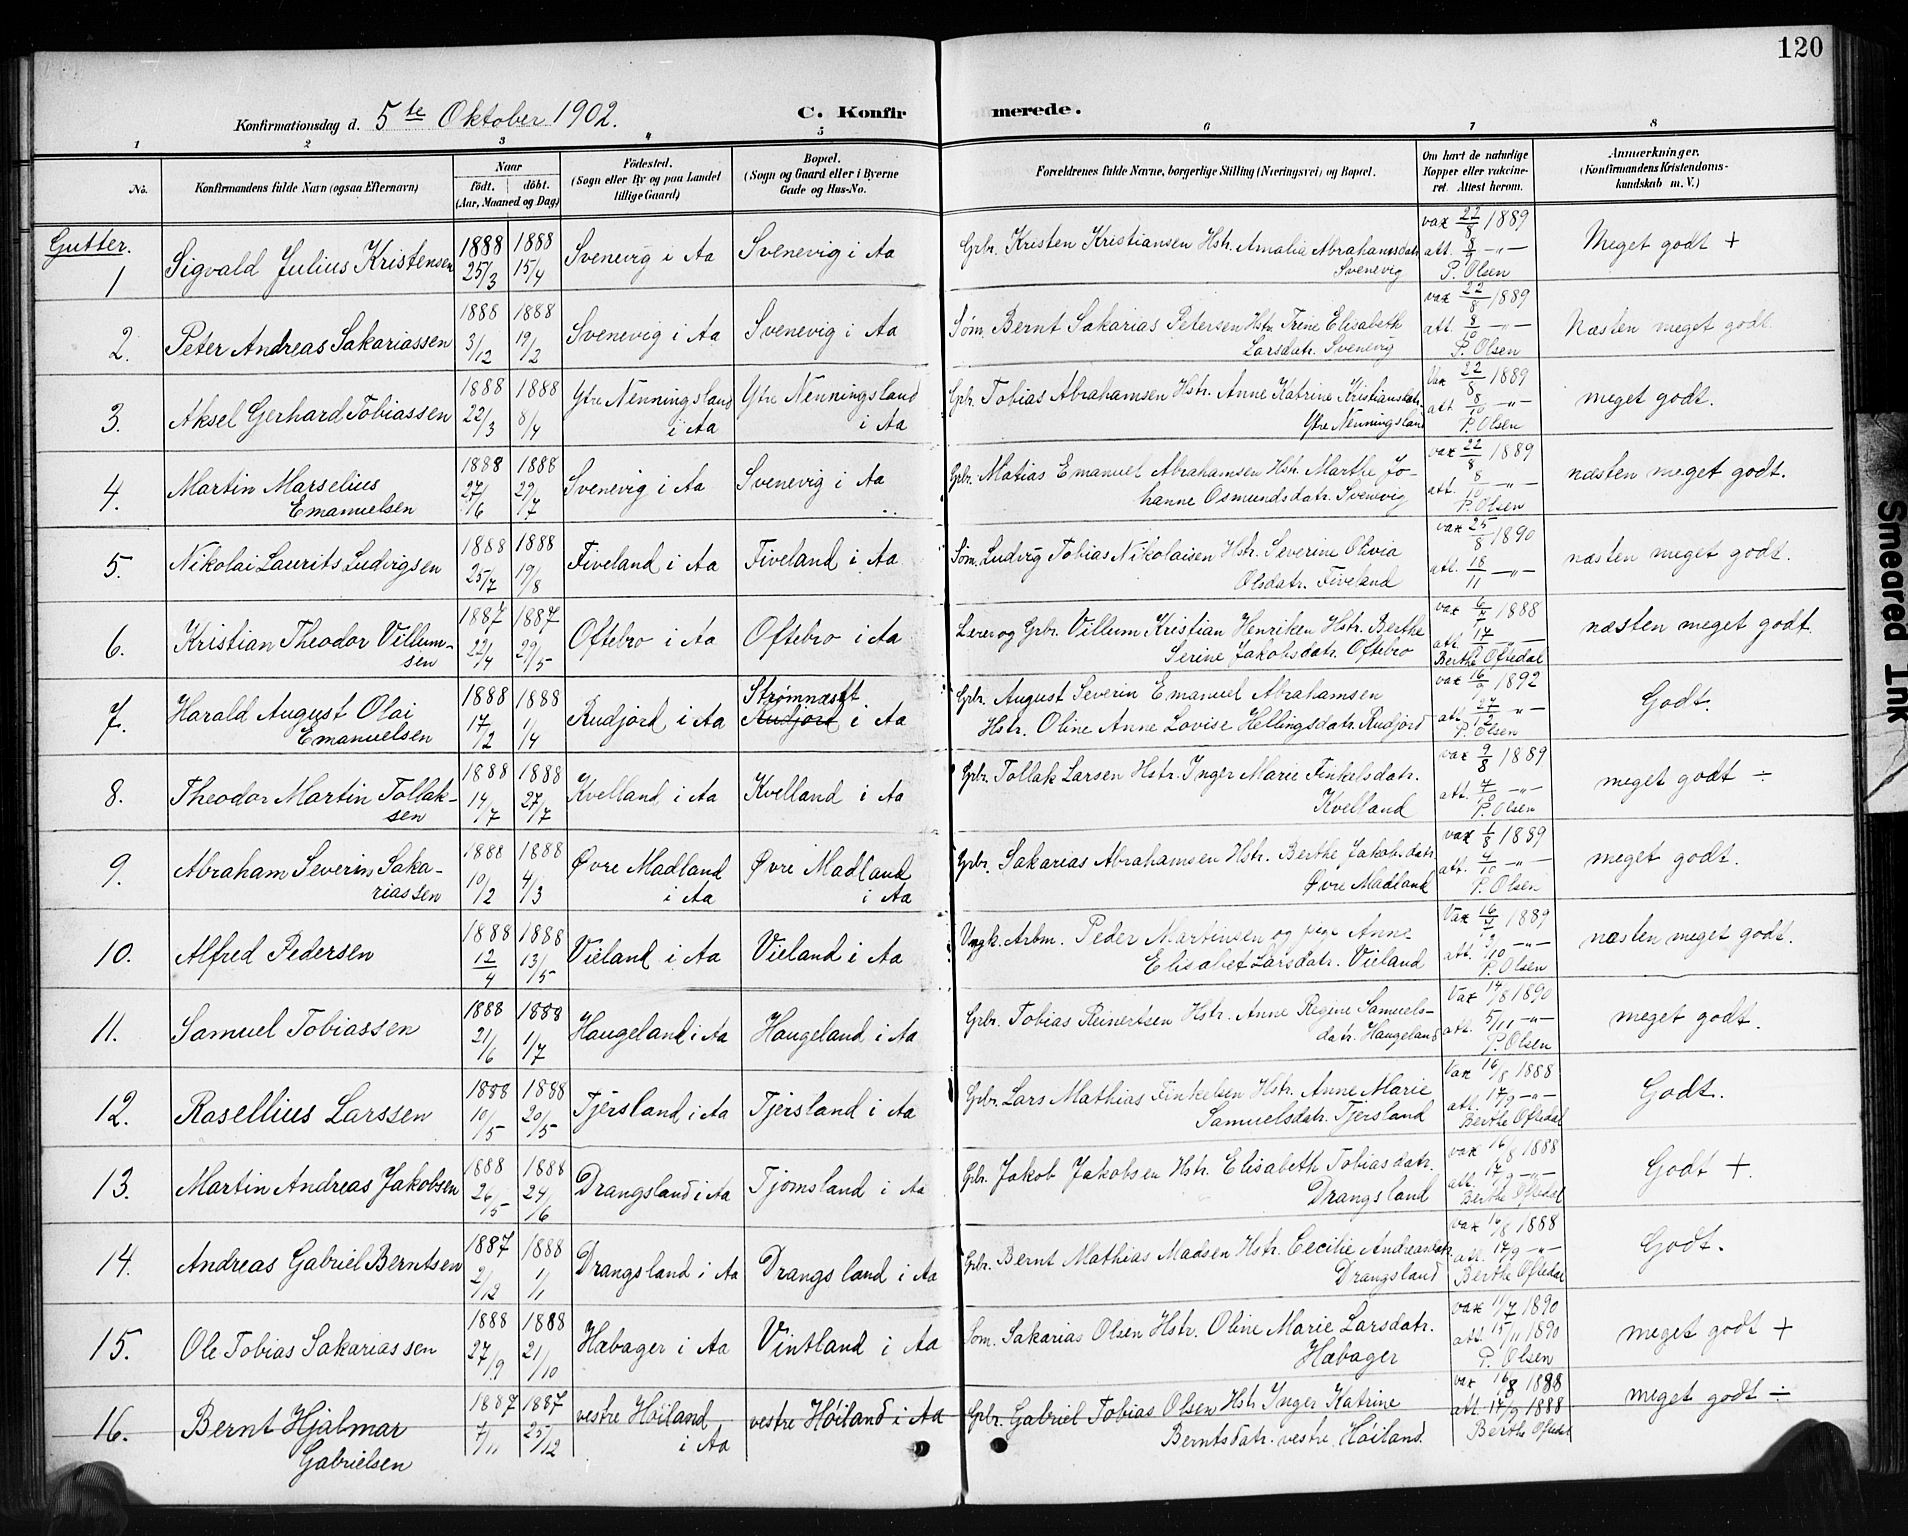 120
Konfirmationsdag d. 5te Oktober 1902. C. Konfirmerede.
1 2 3 4 5 6 7 8
No. Konfirmandens fulde Navn (ogsaa Efternavn) Naar født. døbt. (Aar, Maaned og Dag) Fødested. (Sogn eller By og paa Landet tillige Gaard) Bopæl. (Sogn og Gaard eller i Byerne Gade og Hus-No. Forældrenes fulde Navne, borgerlige Stilling (Næringsvei) og Bopæl. Om havt de naturlige Kopper eller vaccineret. Attest herom. Anmærkninger. (Konfirmandens Kristendomskundskab m. V.)
Gutter.
1 Sigvald Julius Kristensen 1888 25/3 1888 15/4 Svenevig i Aa Svenevig i Aa Grbr. Kristen Kristiansen Hstr. Amalia Abrahamsdatr. Svenevig vax 22/8 1889 att. 8/9 -"- P. Olsen Meget godt +
2. Peter Andreas Sakariassen 1888 3/12 1888 19/2 Svenevig i Aa Svenevig i Aa Søm. Bernt Sakarias Petersen Hstr. Trine Elisabeth Larsdatr. Svenevig vax 22/8 1889 att. 8/10 -"- P. Olsen Næsten meget godt.
3. Aksel Gerhard Tobiassen 1888 22/3 1888 8/4 Ytre Nenningsland i Aa Ytre Nenningsland i Aa Gbr. Tobias Abrahamsen Hstr. Anne Katrine Kristiansdatr. Ytre Nenningsland Vax 22/8 1889 att. 8/10 -"- P. Olsen meget godt.
4. Martin Marselius Emanuelsen 1888 27/6 1888 29/7 Svenevig i Aa Svenevig i Aa Grbr. Matias Emanuel Abrahamsen Hstr. Marthe Johanne Osmundsdatr. Svenevig vax 22/8 1889 att. 8/10 -"- P. Olsen næsten meget godt.
5. Nikolai Laurits Ludvigsen 1888 25/7 1888 19/8 Fiveland i Aa Fiveland i Aa Søm. Ludvig Tobias Nikolaisen Hstr. Severine Olivia Olsdatr. Fiveland vax 25/8 1890 att. 18/11 -"- næsten meget godt.
6. Kristian Theodor Villumsen 1887 22/4 1887 29/5 Oftebro i Aa Oftebro i Aa Lærer og Grbr. Villum Kristian Henriken Hstr. Berthe Serine Jakobsdatr. Oftebro vax 6/7 1888 att. 17/7 -"- Berthe Oftedal næsten meget godt.
7. Harald August Olai Emanuelsen 1888 17/2 1888 1/4 Rudjord i Aa Strømnæstt Rudjord i Aa Gbr. August Severin Emanuel Abrahamsen Hstr. Oline Anne Lovise Hellingsdatr. Rudjord vax 16/9 1892 att. 27/12 "- P. Olsen Godt.
8. Theodor Martin Tollaksen 1888 14/7 1888 27/7 Kvelland i Aa Kvelland i Aa Gbr. Tollak Larsen Hstr. Inger Marie Finkelsdatr. Kvelland vax 9/8 1889 att. 4/10 -"- P. Olsen meget godt ÷
9. Abraham Severin Sakariassen 1888 10/2 1888 4/3 Øvre Madland i Aa Øvre Madland i Aa Gbr. Sakarias Abrahamsen Hstr. Berthe Jakobsdatr. Øvre Madland vax 1/8 1889 att. 4/10 -"- P. Olsen meget godt.
10. Alfred Pedersen 1888 12/4 1888 13/5 Vieland i Aa Vieland i Aa Ungk. Arbm. Peder Martinsen og pige Anne Elisabet Larsdatr. Vieland Vax 16/7 1889 att. 9/10 -"- P. Olsen næsten meget godt.
11. Samuel Tobiassen 1888 21/6 1888 1/7 Haugeland i Aa Haugeland i Aa Gbr. Tobias Reinertsen Hstr. Anne Regine Samuelsdatr. Haugeland Vax 14/8 1890 att. 5/11 -"- P. Olsen meget godt.
12. Rasellius Larssen 1888 10/5 1888 20/5 Tjersland i Aa Tjersland i Aa Gbr. Lars Mathias Finkelsen Hstr. Anne Marie Samuelsdatr. Tjersland Vax 16/8 1888 att. 17/9 -"- Berthe Oftedal Godt.
13. Martin Andreas Jakobsen 1888 26/5 1888 24/6 Drangsland i Aa Tjomsland i Aa Gbr. Jakob Jakobsen Hstr. Elisabeth Tobiasdatr. Drangsland vax 16/8 1888 att. 17/9 -"- Berthe Oftedal Godt +.
14. Andreas Gabriel Berntsen 1887 2/12 1888 1/1 Drangsland i Aa Drangsland i Aa Gbr. Bernt Mathias Madsen Hstr. Cecilie Andreasdatr. Drangsland vax 16/8 1888 att. 17/9 -"- Berthe Oftedal Godt.
15. Ole Tobias Sakariassen 1888 27/9 1888 21/10 Hæbager i Aa Vintland i Aa Søm. Sakarias Olsen Hstr. Oline Marie Larsdatr. Hæbager vax 11/7 1890 att. 15/11 1890 P. Olsen meget godt +
16. Bernt Hjalmar Gabrielsen 1887 7/11 1887 25/12 vestre Høiland i Aa vestre Høiland i Aa Gbr. Gabriel Tobias Olsen Hstr. Inger Katrine Berntsdatr. vestre Høiland. vax 16/8 1888 att. 17/9 1888 Berthe Oftedal meget godt ÷
Smeared Ink